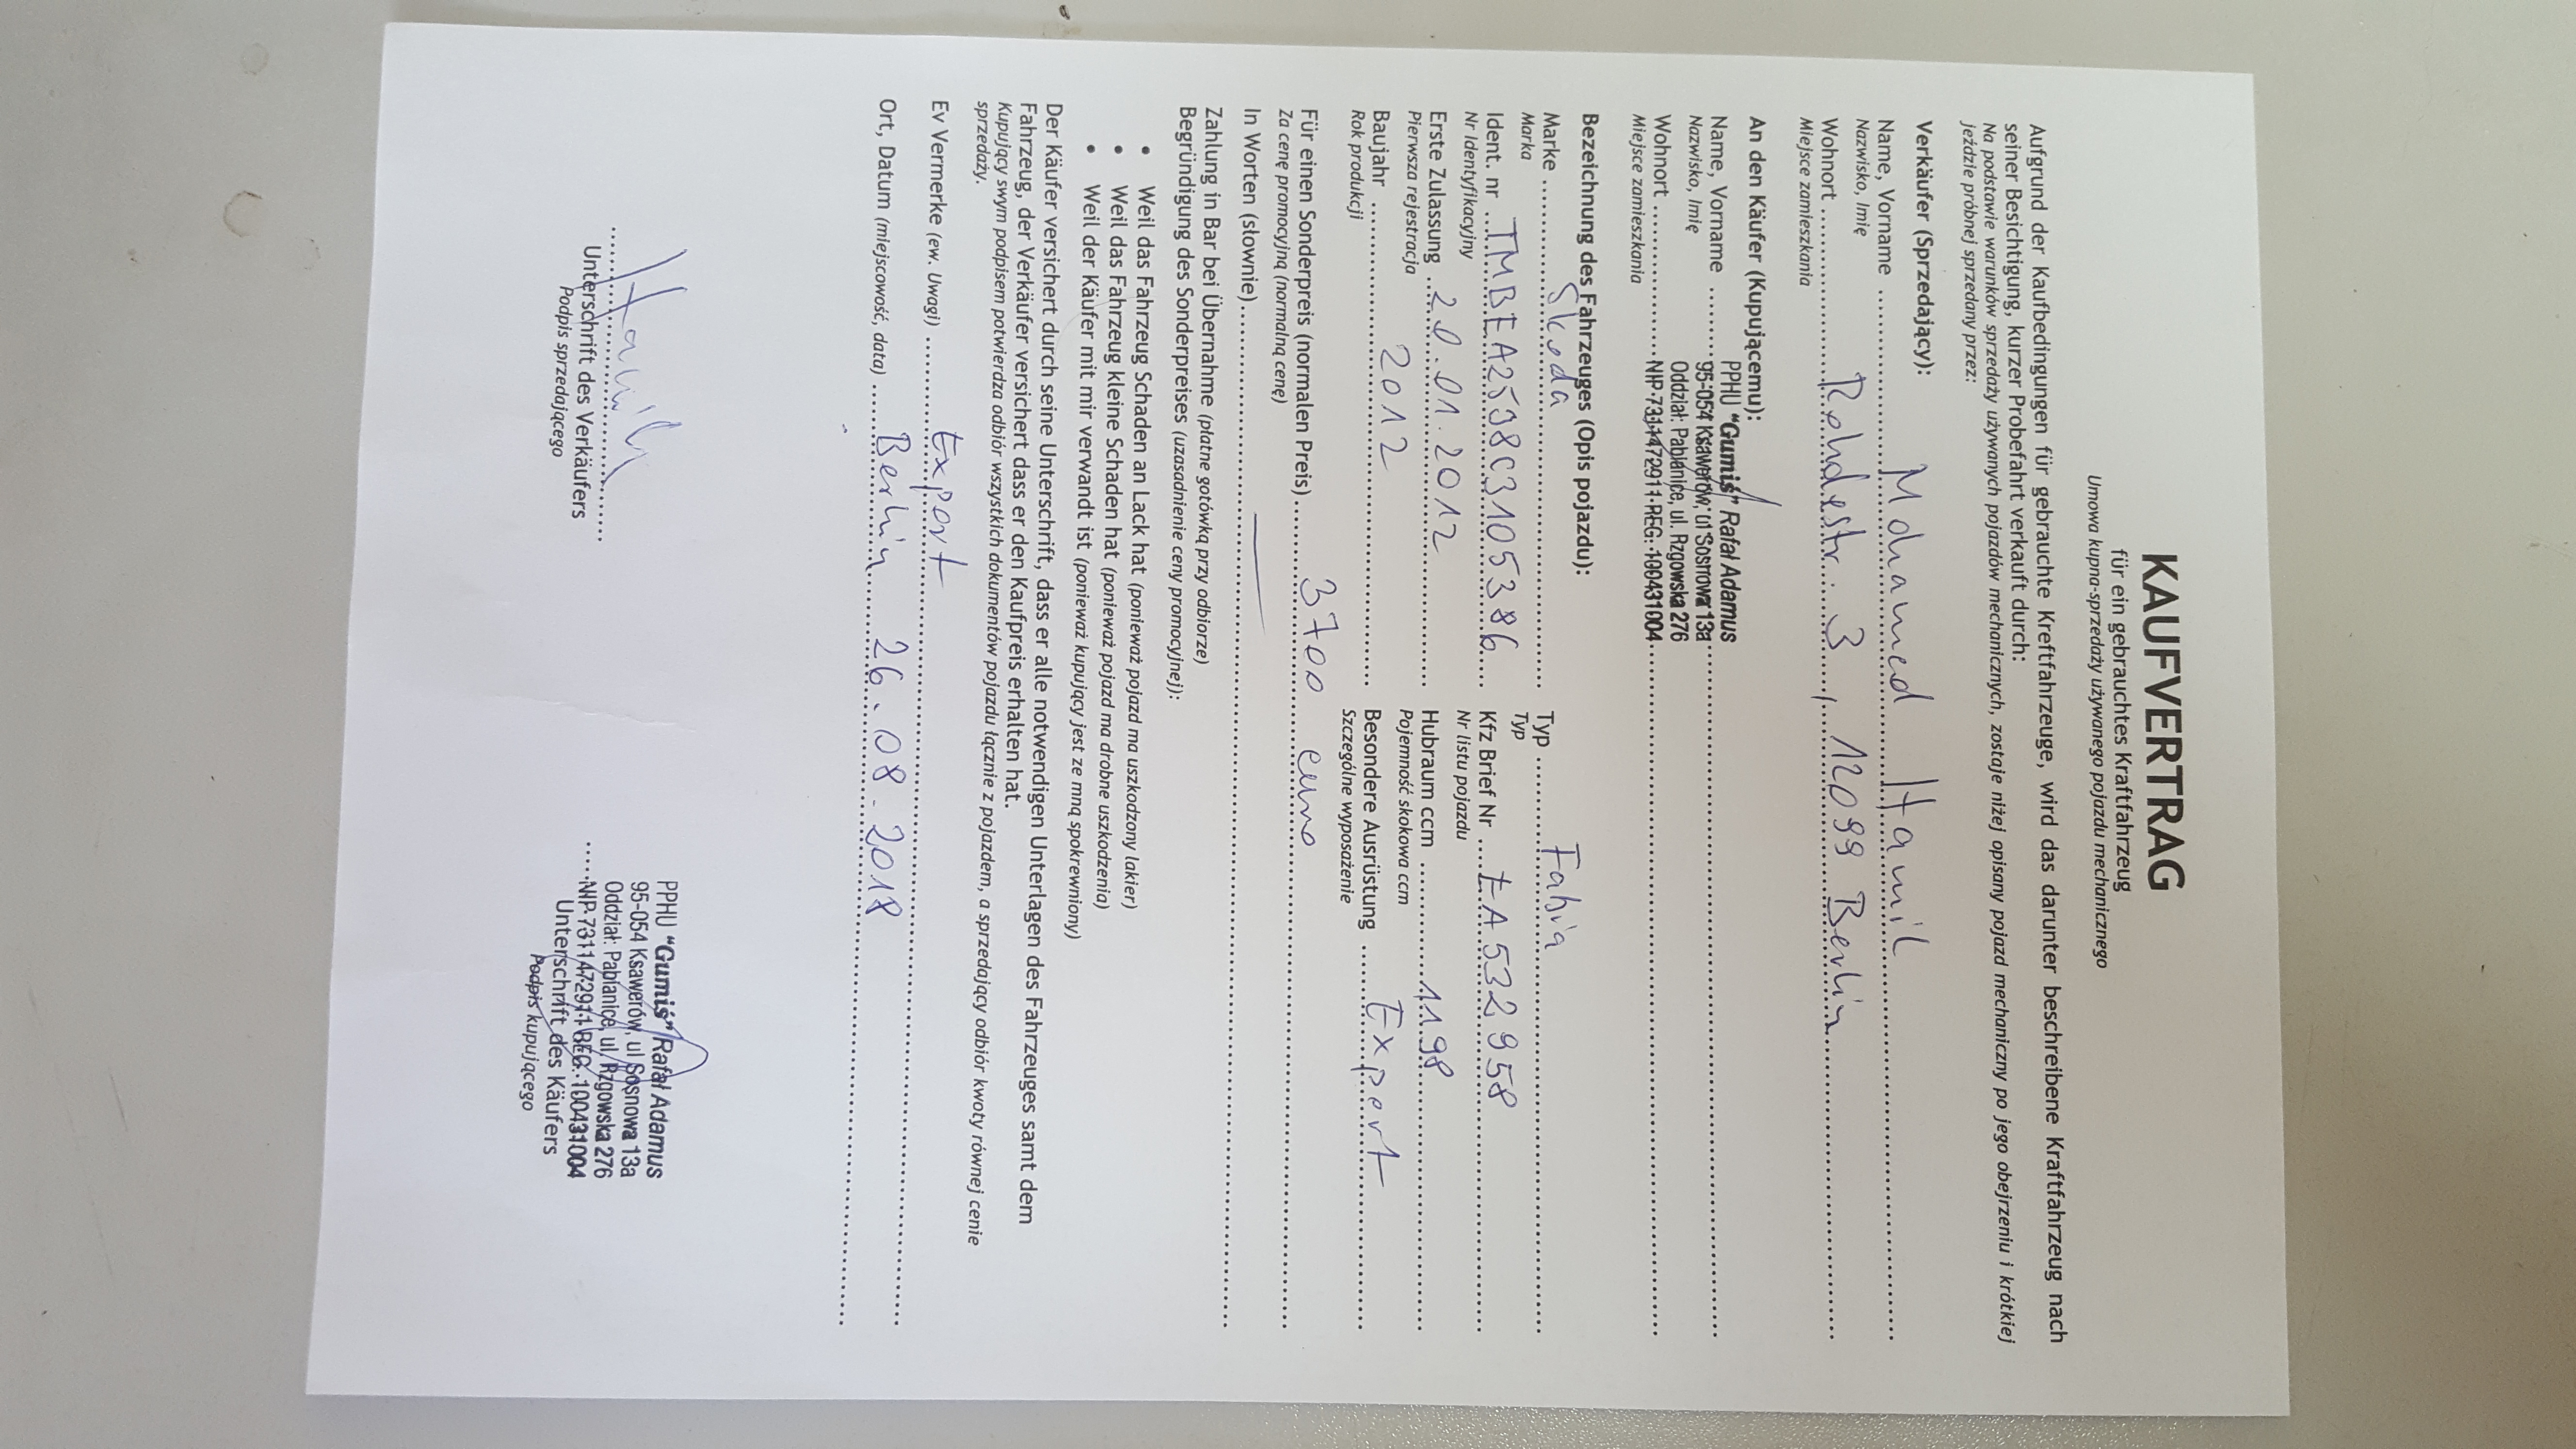 KAUFVERTRAG
für ein gebrauchtes Kraftfahrzeug
Umowa kupna-sprzedaży używanego pojazdu mechanicznego
Aufgrund der Kaufbedingungen für gebrauchte Kreftfahrzeuge, wird das darunter beschreibene Kraftfahrzeug nach
seiner Besichtigung, kurzer Probefahrt verkauft durch:
Na podstawie warunków sprzedaży używanych pojazdów mechanicznych, zostaje niżej opisany pojazd mechaniczny po jego obejrzeniu i krótkiej
jeździe próbnej sprzedany przez:
Verkäufer (Sprzedający):
Name, Vorname Mohamed Hamil
Nazwisko, Imię
Wohnort 3, 12099 Berlin
Miejsce zamieszkania
An den Käufer (Kupującemu):
PPHU "Gumiś" Rafał Adamus
Name, Vorname 95-054 Ksawerów, ul Sosnowa 13a
Nazwisko, Imię Oddział: Pabianice, ul. Rzgowska 276
Wohnort NIP 7311472911 REG.:100431004
Miejsce zamieszkania
Bezeichnung des Fahrzeuges (Opis pojazdu):
Marke Skoda Typ Fabia
Marka Typ
Ident. nr TMBEA25J38C3105386 Kfz Brief Nr EA532958
Nr Identyfikacyjny Nr listu pojazdu
Erste Zulassung 20.01.2012 Hubraum ccm 1198
Pierwsza rejestracja Pojemność skokowa ccm
Baujahr 2012 Besondere Ausrüstung Expert
Rok produkcji Szczególne wyposażenie
Für einen Sonderpreis (normalen Preis) 3700 euro
Za cenę promocyjną (normalną cenę)
In Worten (słownie)
Zahlung in Bar bei Übernahme (płatne gotówką przy odbiorze)
Begründigung des Sonderpreises (uzasadnienie ceny promocyjnej):
• Weil das Fahrzeug Schaden an Lack hat (ponieważ pojazd ma uszkodzony lakier)
• Weil das Fahrzeug kleine Schaden hat (ponieważ pojazd ma drobne uszkodzenia)
• Weil der Käufer mit mir verwandt ist (ponieważ kupujący jest ze mną spokrewniony)
Der Käufer versichert durch seine Unterschrift, dass er alle notwendigen Unterlagen des Fahrzeuges samt dem
Fahrzeug, der Verkäufer versichert dass er den Kaufpreis erhalten hat.
Kupujący swym podpisem potwierdza odbiór wszystkich dokumentów pojazdu łącznie z pojazdem, a sprzedający odbiór kwoty równej cenie
sprzedaży.
Ev Vermerke (ew. Uwagi) Export
Ort, Datum (miejscowość, data) Berlin 26.08.2018
PPHU "Gumiś" Rafał Adamus
95-054 Ksawerów, ul Sosnowa 13a
Oddział: Pabianice, ul. Rzgowska 276
NIP 7311472911 REG.:100431004
Unterschrift des Verkäufers Unterschrift des Käufers
Podpis sprzedającego Podpis kupującego